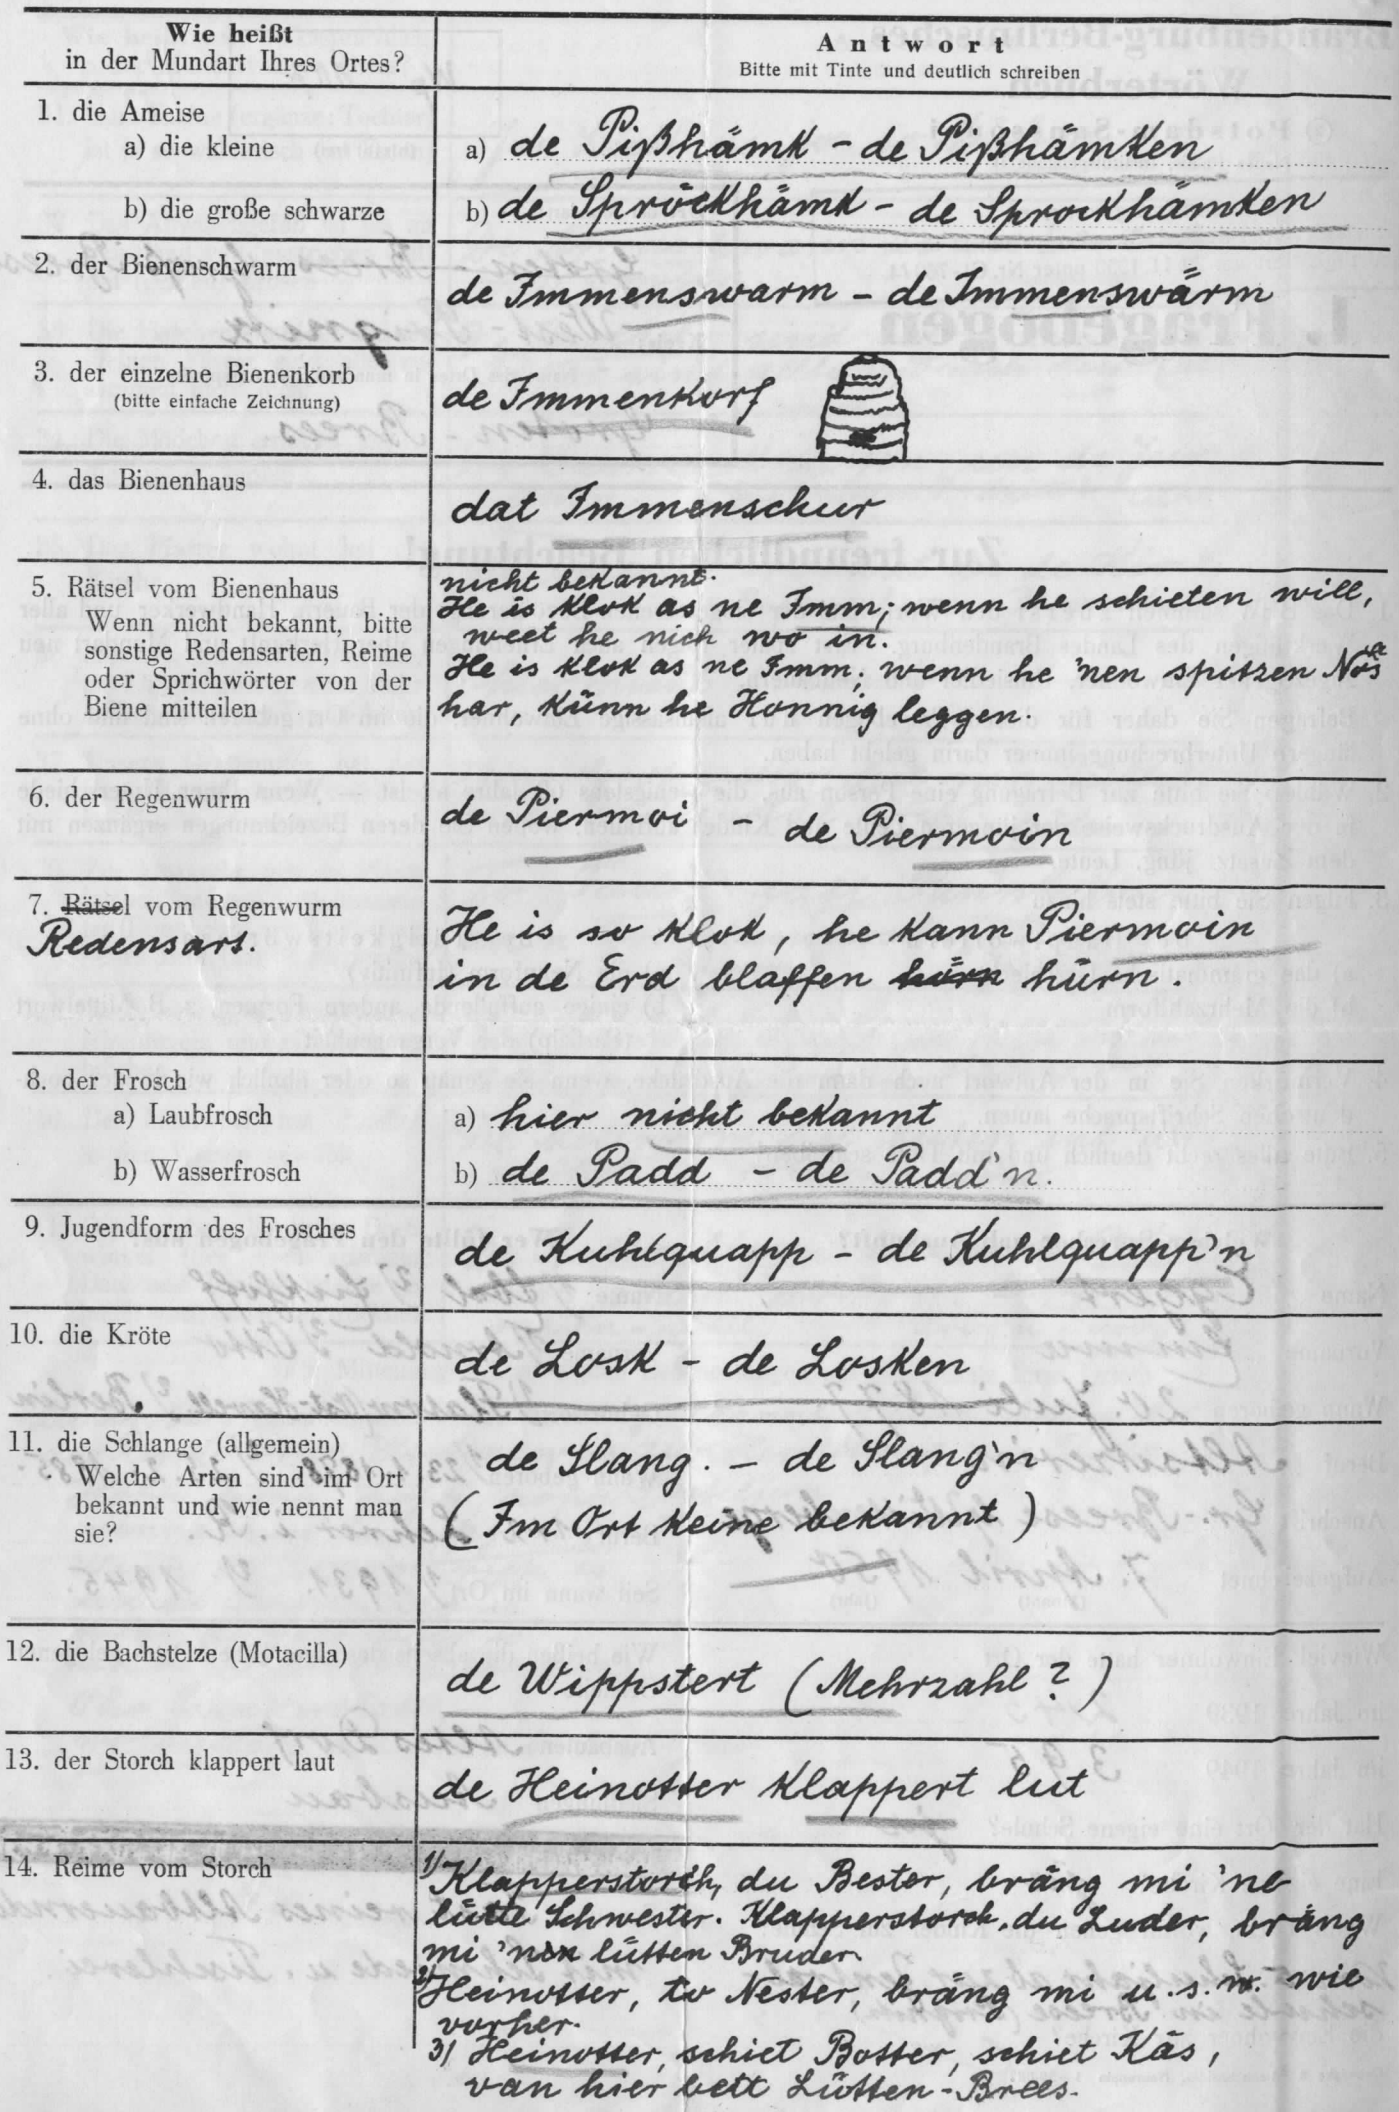 Wie heißt
in der Mundart Ihres Ortes?
Antwort
Bitte mit Tinte und deutlich schreiben
1. die Ameise
a) die kleine
a) de Pißhämk - de Pißhämken
b) die große schwarze
b) de Spröckhämk - de Sprockhämken
2. der Bienenschwarm
de Immenswarm - de Immenswärm
3. der einzelne Bienenkorb
(bitte einfache Zeichnung)
de Immenkorf
4. das Bienenhaus
dat Immenschur
5. Rätsel vom Bienenhaus
Wenn nicht bekannt, bitte
sonstige Redensarten, Reime
oder Sprichwörter von der
Biene mitteilen
nicht bekannt.
He is klok as ne Imm; wenn he schieten will,
weet he nich wo in.
He is klok as ne Imm; wenn he 'nen spitzen
har, künn he Honnig leggen.
6. der Regenwurm
de Piermoi - de Piermoin
7. Rätsel vom Regenwurm
Redensart.
He is so klok, he kann Piermoin
in de Erd blaffen hörn hürn.
8. der Frosch
a) Laubfrosch
a) hier nicht bekannt
b) Wasserfrosch
b) de Padd - de Padd'n.
9. Jugendform des Frosches
de Kuhlquapp - de Kuhlquapp'n
10. die Kröte
de Losk - de Losken
11. die Schlange (allgemein)
Welche Arten sind im Ort
bekannt und wie nennt man
sie?
de Slang. - de Slang'n
(Im Ort keine bekannt)
12. die Bachstelze (Motacilla)
de Wippstert (Mehrzahl?)
13. der Storch klappert laut
de Heinotter klappert lut
14. Reime vom Storch
1) Klapperstorch, du Bester, bräng mi 'ne
lütte Schwester. Klapperstorch, du Luder, bräng
mi 'nen lütten Bruder.
2) Heinotter, to Nester, bräng mi u.s.w. wie
vorher.
3) Heinotter, schiet Botter, schiet Käs,
van hier bett Lütten-Brees.